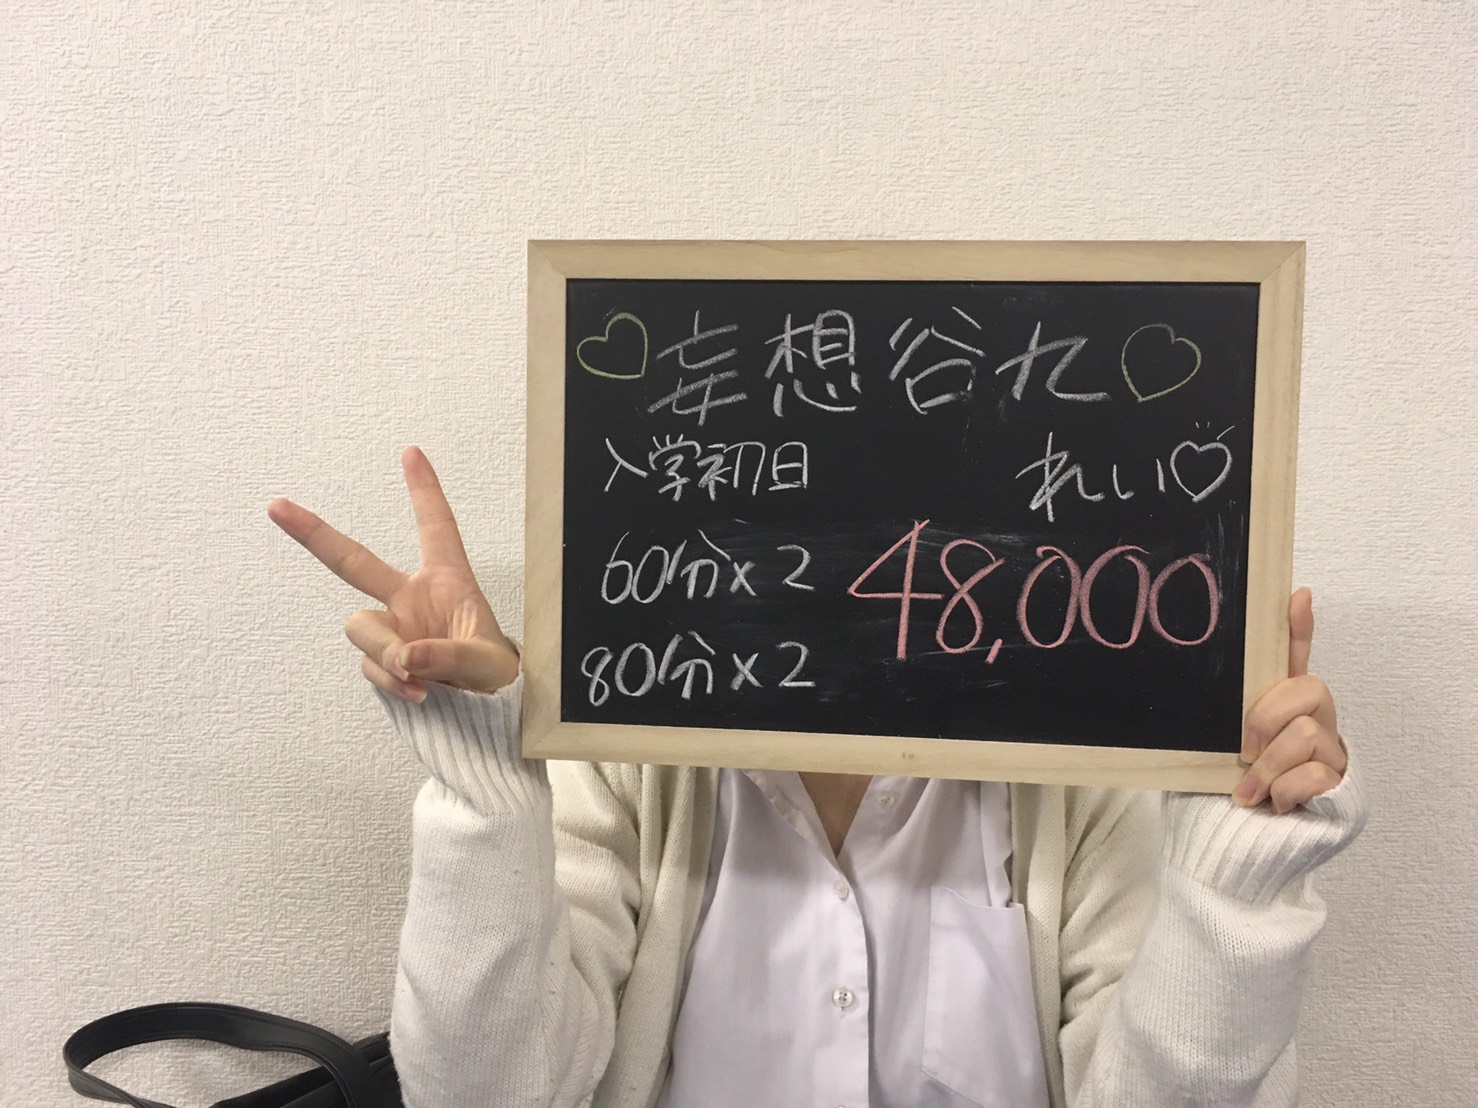 ♡妄想谷九♡
入学初日
れい♡
60分×2
48,000
80分×2